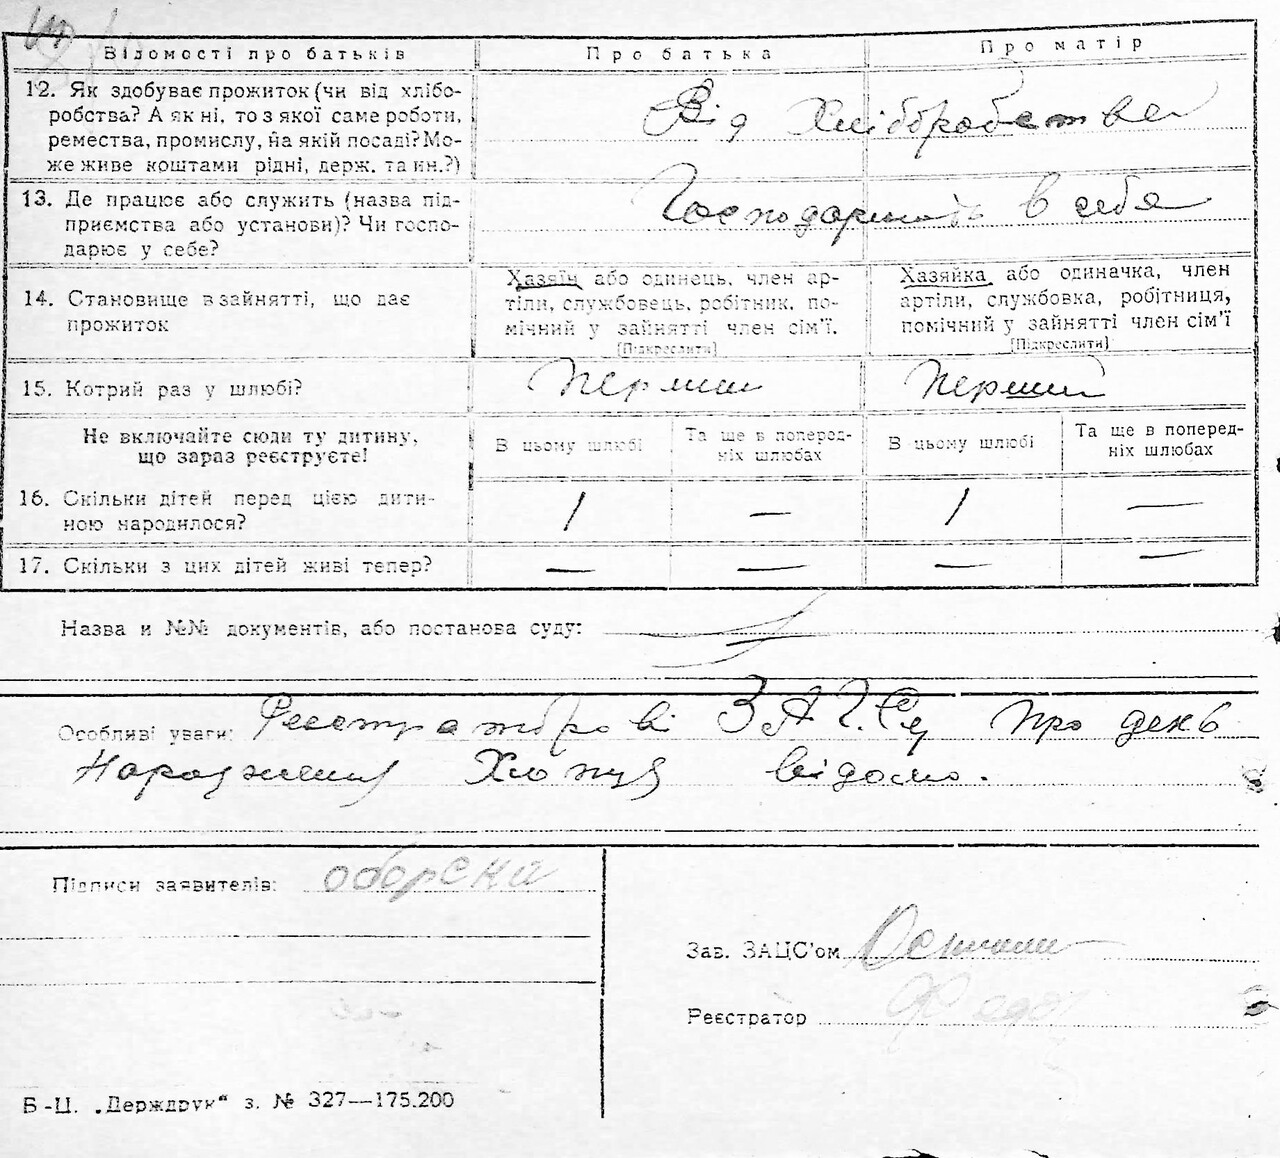 Відомості про батьків Про батька Про матір
12. Як здобуває прожиток (чи від хлібо-
робства? А як ні, то з якої саме роботи,
ремества, промислу, на якій посаді? Мо-
же живе коштами рідні, держ. та ин.?)
Від Хліборобства
13. Де працює або служить (назва під-
приємства або установи)? Чи госпо-
дарює у себе?
Господарюють в себе
14. Становище в зайнятті, що дає
прожиток
Хазяїн або одинець, член ар-
тіли, службовець, робітник, по-
мічний у зайнятті член сім'ї.
(Підкреслити)
Хазяйка або одиначка, член
артіли, службовка, робітниця,
помічний у зайнятті член сім'ї
(Підкреслити)
15. Котрий раз у шлюбі? Перший Перший
Не включайте сюди ту дитину,
що зараз реєструєте!
В цьому шлюбі
Та ще в поперед-
ніх шлюбах
В цьому шлюбі
Та ще в поперед-
ніх шлюбах
16. Скільки дітей перед цією дити-
ною народилося?
1 — 1 —
17. Скільки з цих дітей живі тепер? — — — —
Назва и №№ документів, або постанова суду:
Особливі уваги: Реєстраторові ЗАГСу про день
Народження Хлопця відомо.
Підписи заявителів: оборски
Зав. ЗАЦС'ом
Реєстратор
Б-Ц. „Держдрук" з. № 327—175.200